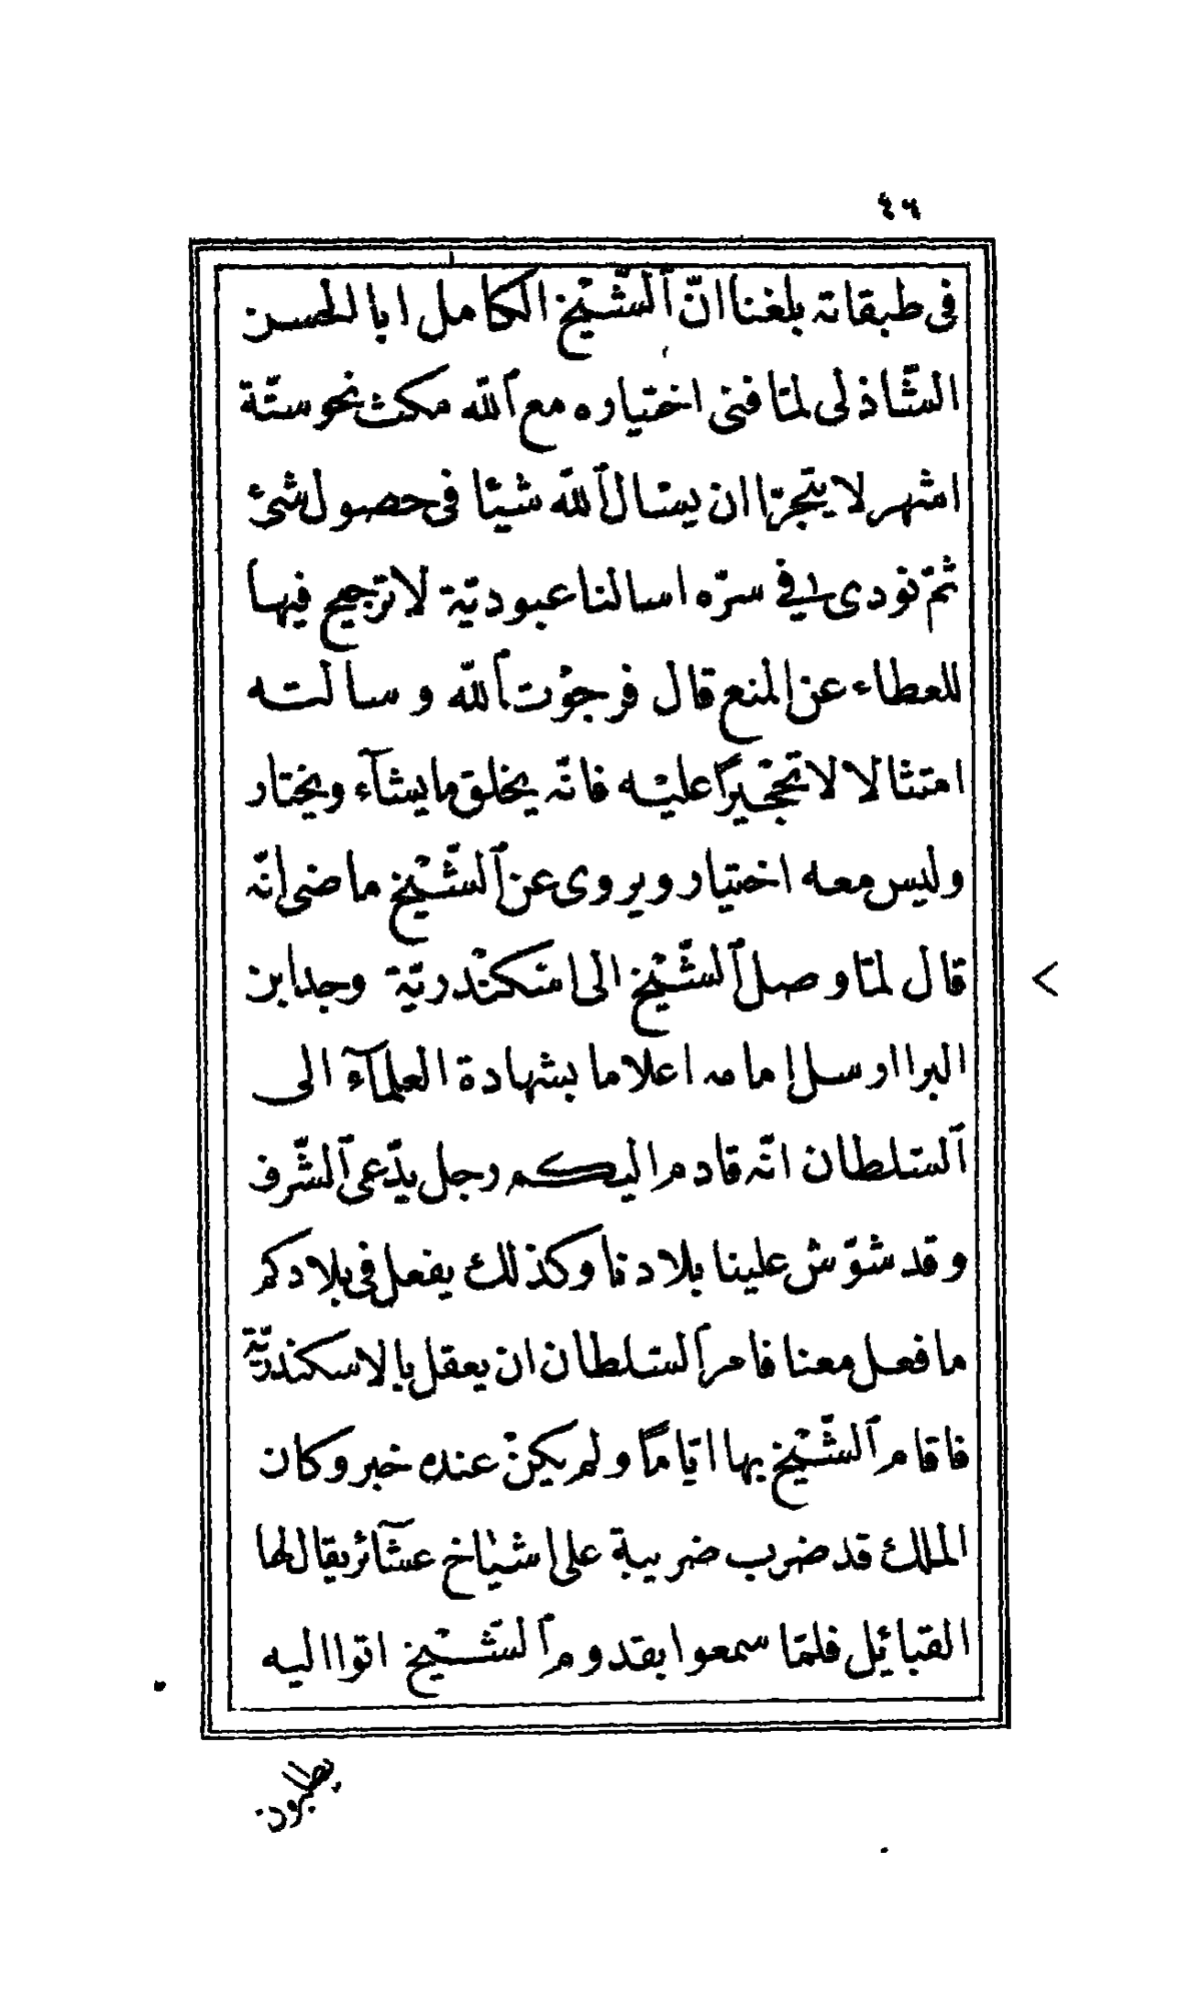 ٤٦
في طبقاته بلغنا انّ ٱلشّيْخ الكامل ابا الحسن
الشّاذلى لمّا فنى اختياره مع ٱللّه مكث نحو ستّة
اشهر لا يتجرّا ان يسْال ٱللّه شيْئا فى حصول شىْء
ثمّ نودى فى سرّه اسالنا عبوديّة لا ترجيح فيها
للعطاء عن المنع قال فرجوْت ٱللّه وسالته
امتثالا لا تحْجيْرًا عليْه فانّه يخلق ما يشآء ويختار
وليس معه اختيار ويروى عن ٱلشّيْخ ماضى إنّه
قال لمّا وصل ٱلشّيْخ الى اسْكنْدريّة وجد ابن
البرا ارسل إمامه اعلاما بشهادة العلمآء الى
ٱلسّلطان انّه قادم اليكم رجل يدّعى ٱلشّرف
وقد شوّش علينا بلادنا وكذلك يفعل فى بلادكم
ما فعل معنا فامر ٱلسّلطان ان يعقل بالاسكندريّة
فاقام ٱلشّيْخ بها ايّامًا ولم يكنْ عنده خبر وكان
الملك قد ضرب ضريبة على اشيٰاخ عشآئر يقال لها
القبائل فلمّا سمعوا بقدوم ٱلشّيْخ اتوا اليه
يطلبون